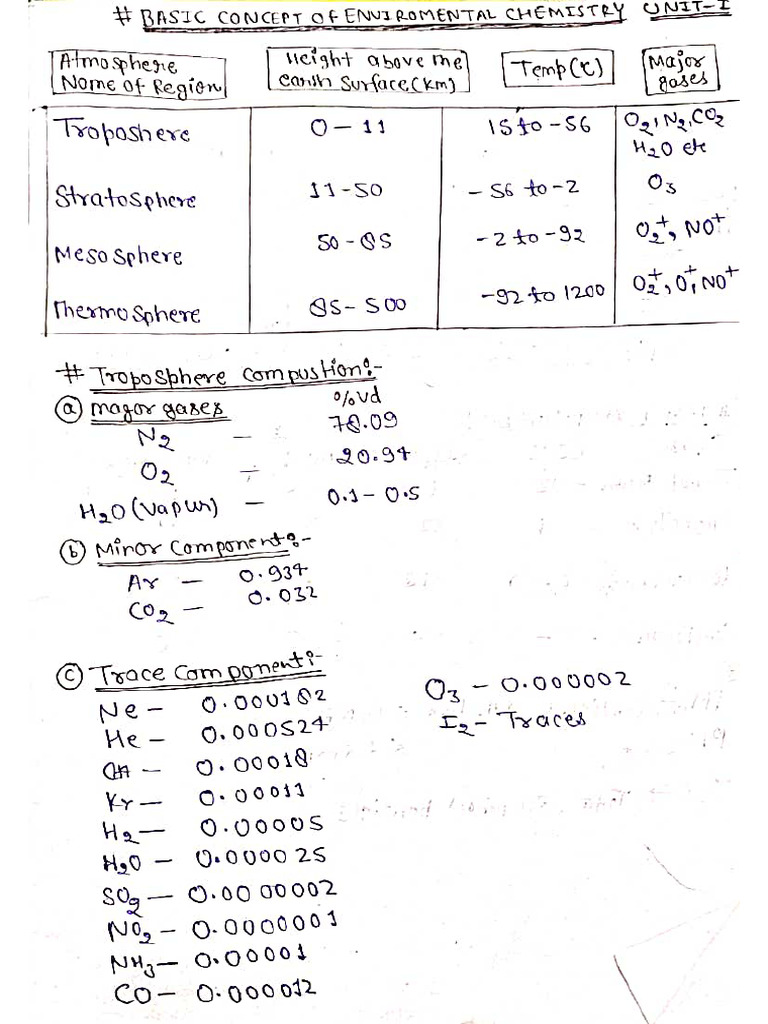 # BASIC CONCEPT OF ENVIROMENTAL CHEMISTRY UNIT-I
Atmosphere Name of Region | Height above the earth surface(km) | Temp(°C) | Major gases
Troposhere 0-11 15 to -56 O₂, N₂, CO₂ H₂O etc
Stratosphere 11-50 -56 to -2 O₃
Mesosphere 50-85 -2 to -92 O₂⁺, NO⁺
Thermosphere 85-500 -92 to 1200 O₂⁺, O⁺, NO⁺
# Troposphere compustion:-
(a) major gases %vol
N₂ - 78.09
O₂ - 20.94
H₂O (vapur) - 0.1-0.5
(b) Minor component:-
Ar - 0.934
CO₂ - 0.032
(c) Trace component:-
Ne - 0.000182
He - 0.000524
- 0.00018
Kr - 0.00011
H₂ - 0.00005
H₂O - 0.000025
SO₂ - 0.0000002
NO₂ - 0.0000001
NH₃ - 0.00001
CO - 0.000012
O₃ - 0.000002
I₂ - Traces